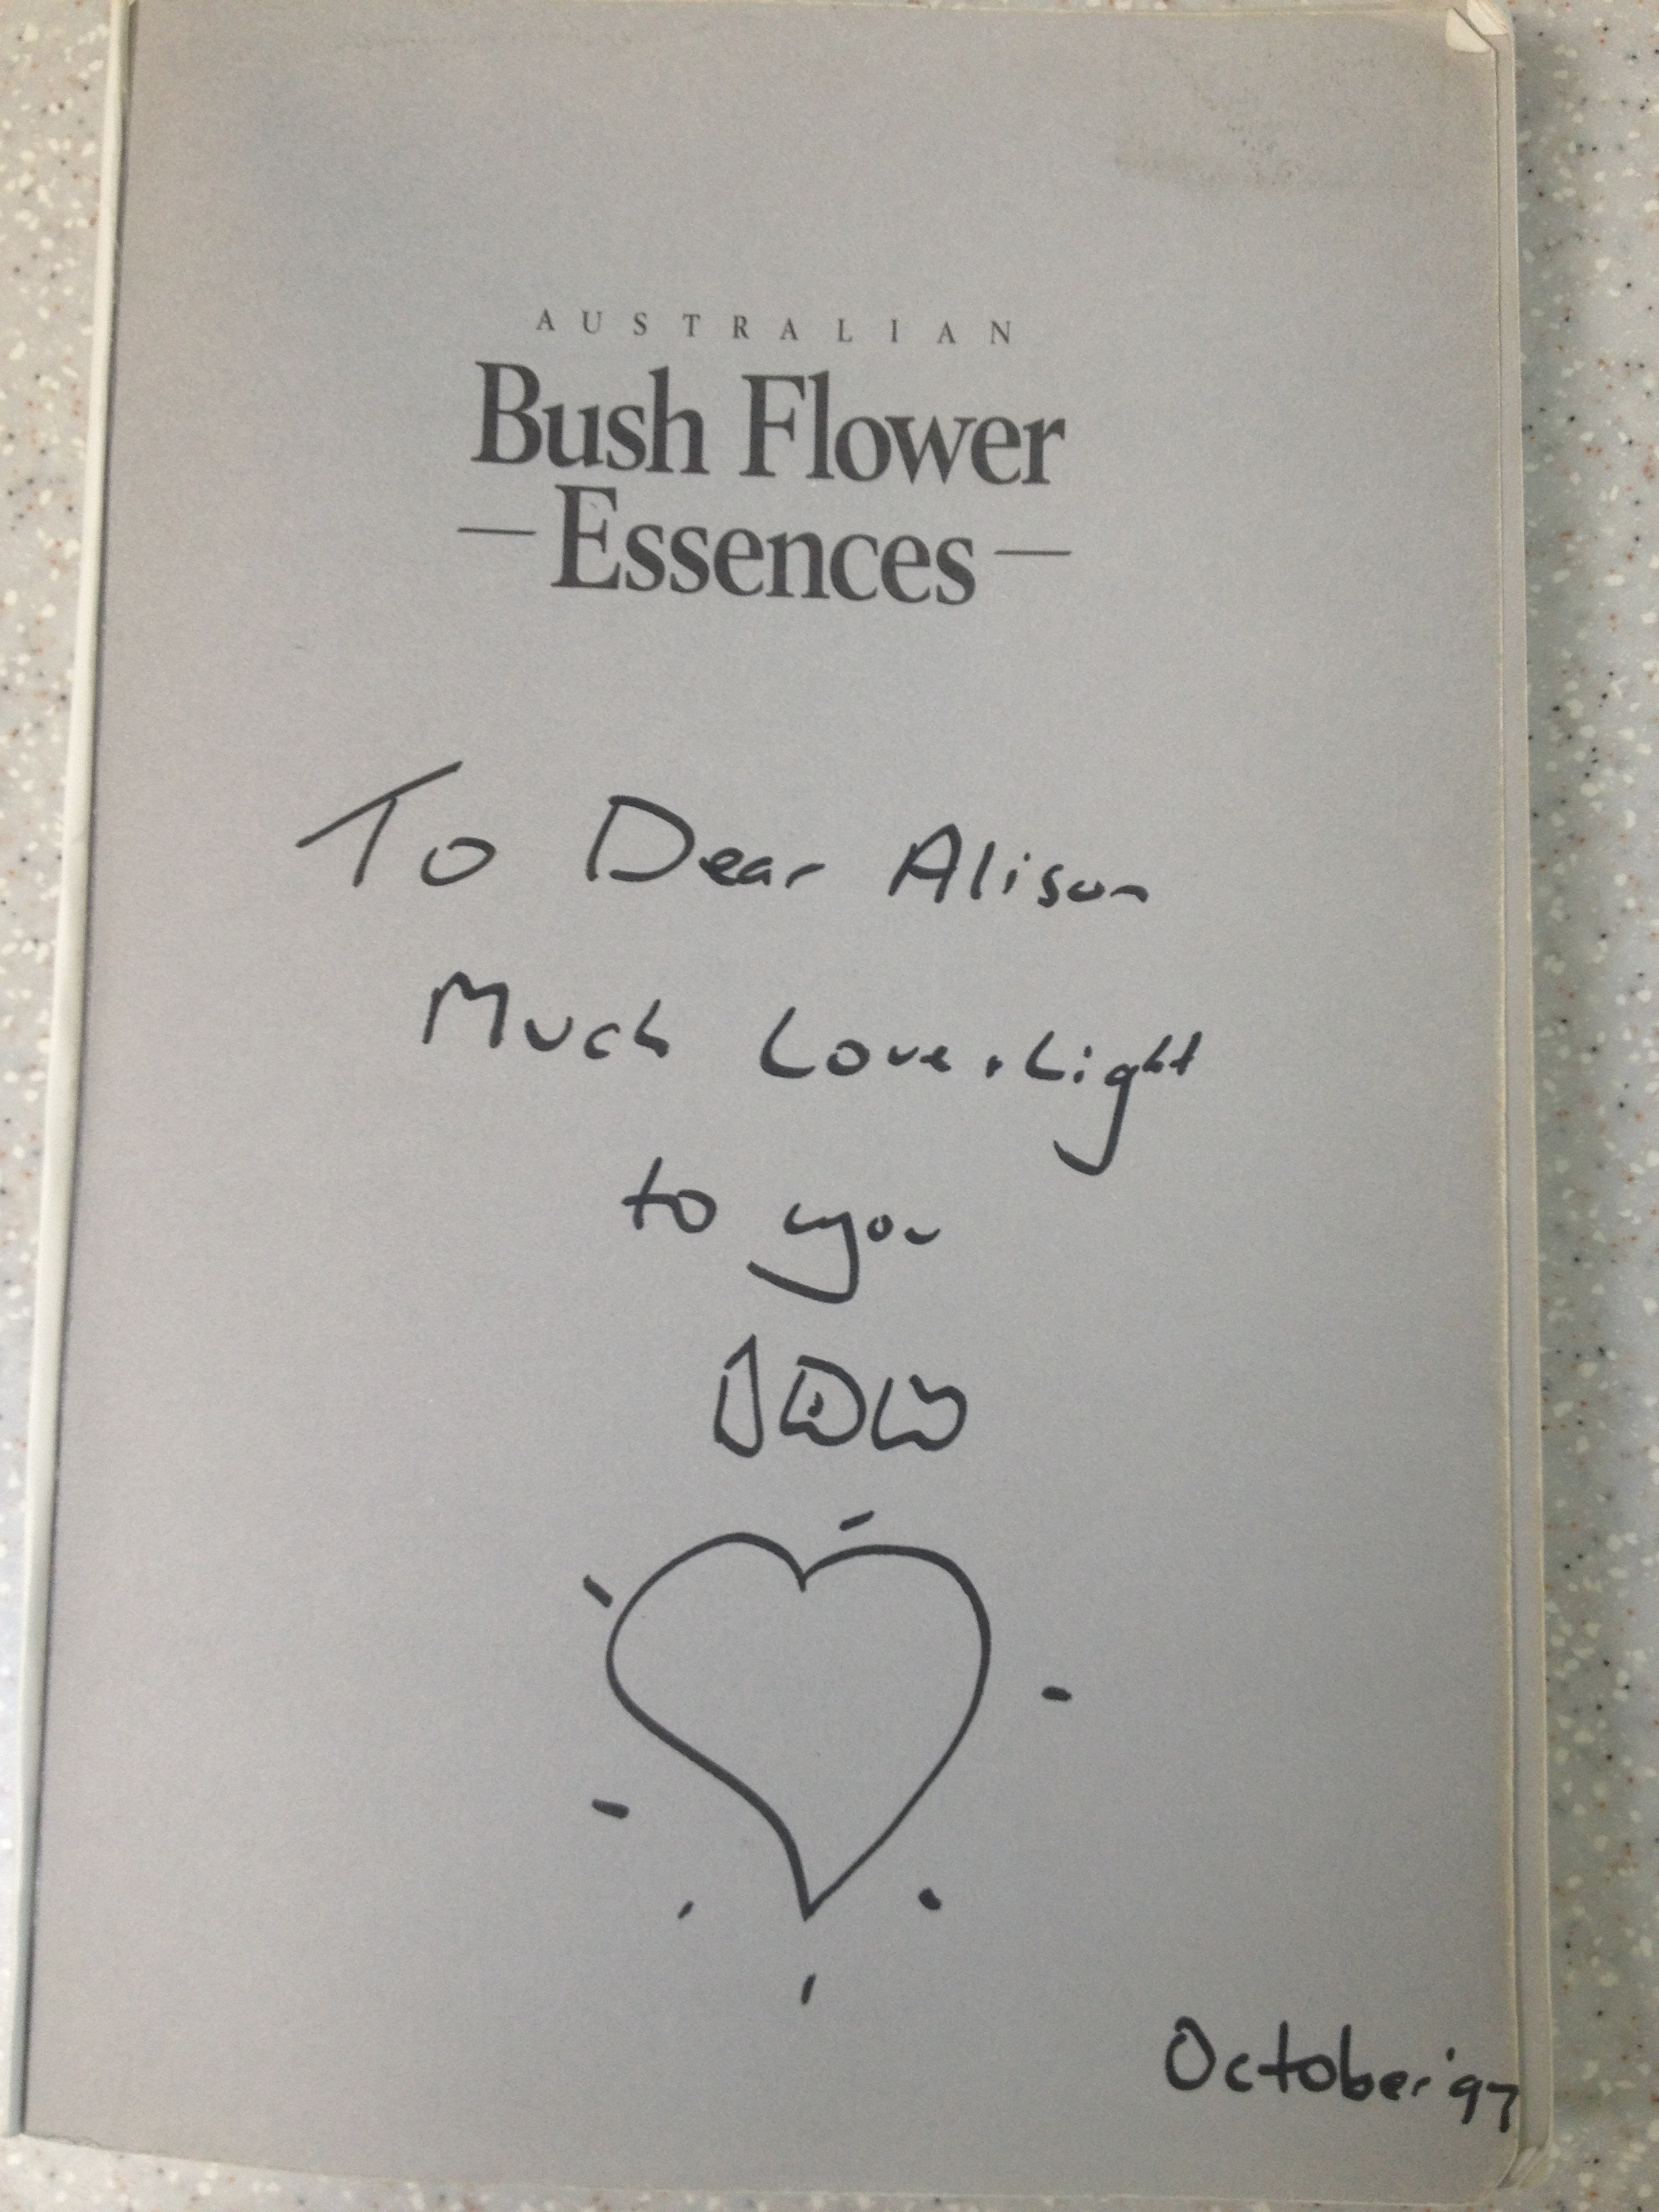 AUSTRALIAN
Bush Flower
— Essences —
To Dear Alison
Much Love + Light
to you
October '97